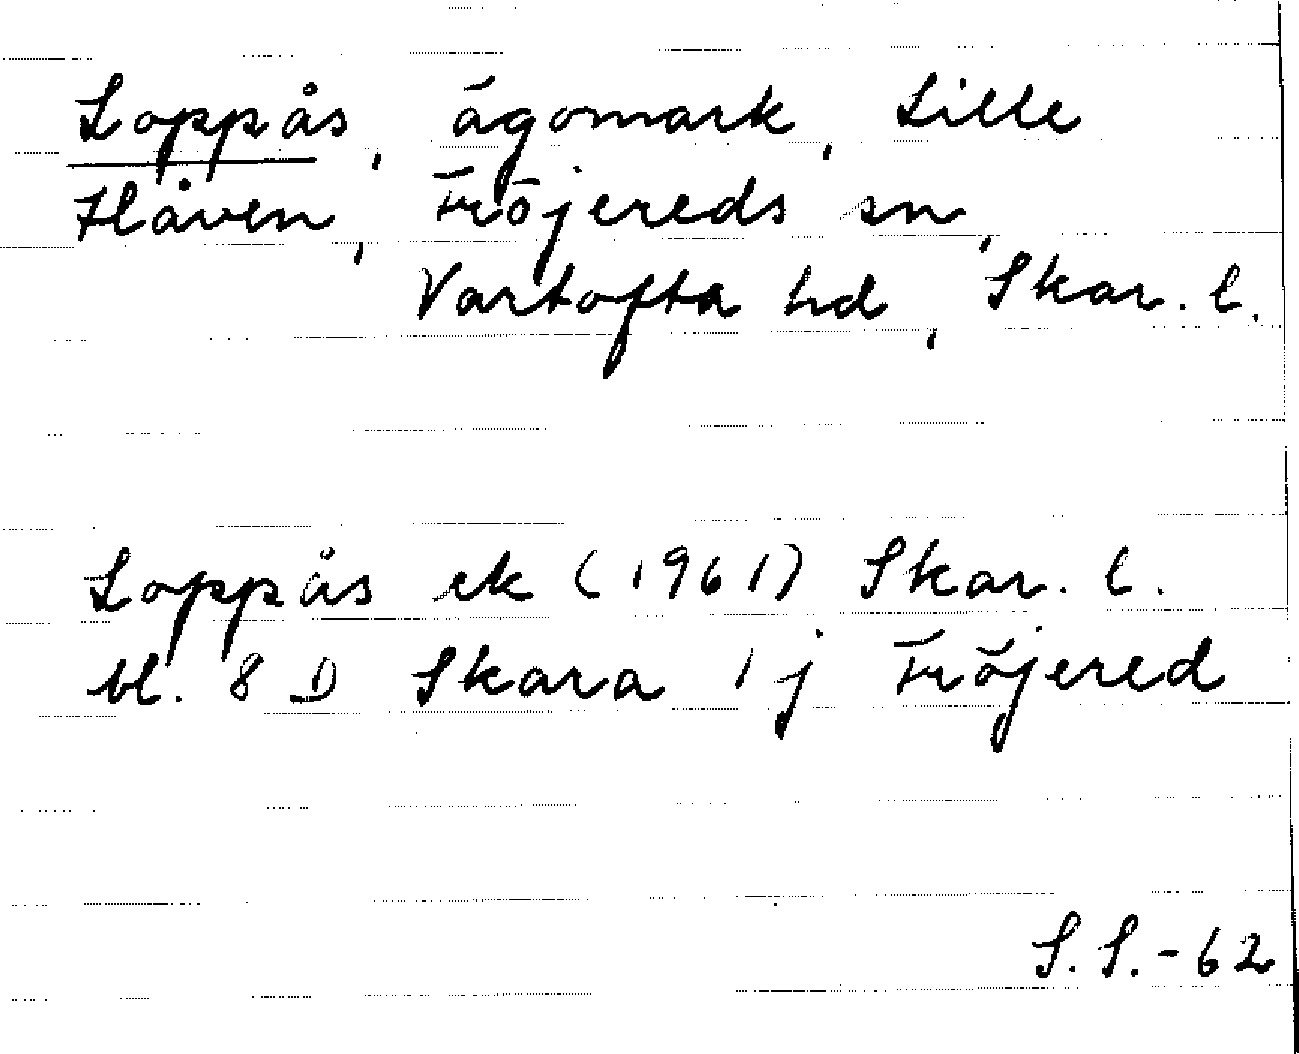 Loppås, ägomark, Lille
Håven, Fröjereds sn,
Vartofta hd, Skar. l.
Loppås ek (1961) Skar. l.
bl. 8 D Skara 1 j Fröjered
S. S. - 62